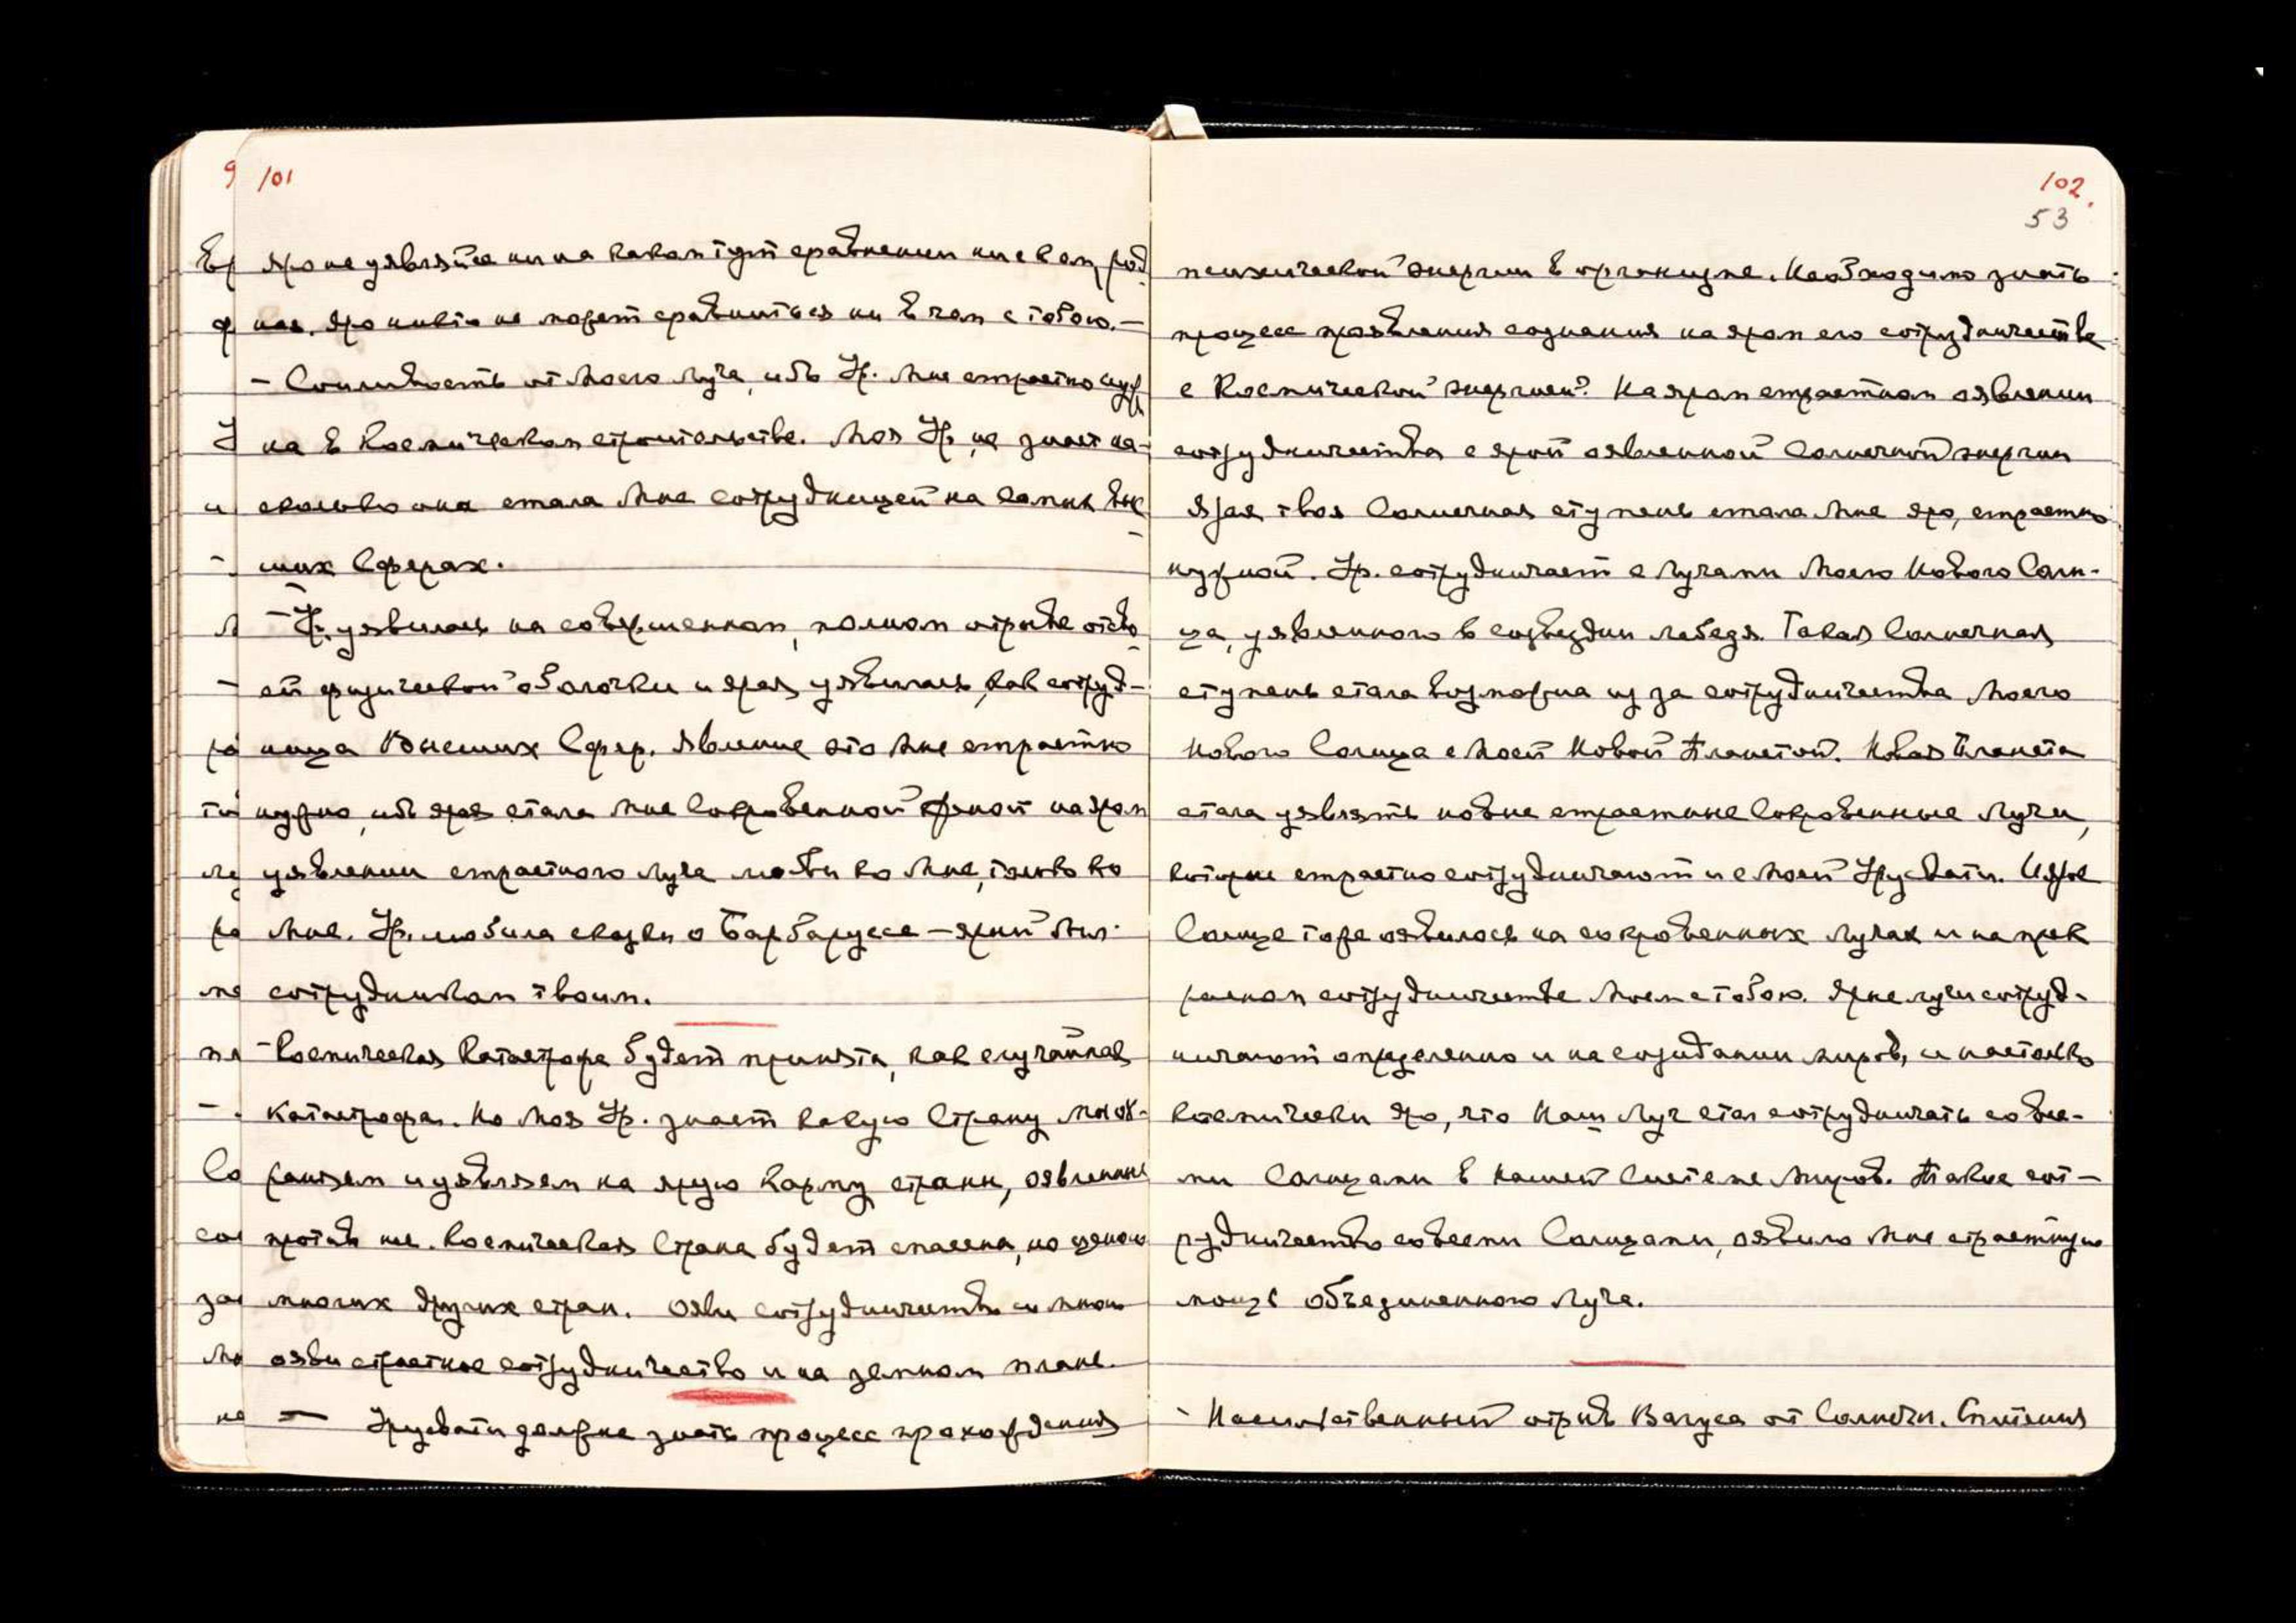 9 101
Яро не уявляйся ни на каком ту[т] сравнении ни с кем, род
ная. Яро никто не может сравниться ни в чем с тобою. —
— Сонливость от Моего Луча, ибо Ур. Мне страстно нуж
на в Космическом строительстве. Моя Ур. не знает на-
сколько она стала Мне сотрудницей на самых Выс
ших Сферах.
— Ур. уявилась на совершенном, полном отрыве от сво
ей физической оболочки и ярая уявилась, как сотруд-
ница Высших Сфер. Явление это Мне страстно
нужно, ибо ярая стала Мне Сокровенной Женой на яром
уявлении страстного Луча любви ко Мне, только ко
Мне. Ур. любила сказки о Барбаруссе — ярый был
сотрудником твоим.
— Космическая Катастрофа будет принята, как случайная
катастрофа. Но Моя Ур. знает какую Страну Мы ох-
раняем и уявляем на ярую Карму страны, оявленные
против нее. Космическая Страна будет спасена, но ценою
многих других стран. Ояви сотрудничество со Мною
ояви страстное сотрудничество и на земном плане.
— Урусвати должна знать процесс прохождения
102.
53
психической энергии в организме. Необходимо знать
процесс проявления сознания на яром его сотрудничестве
с Космической энергией? На яром страстном оявлении
сотрудничества с ярой оявленной Солнечной энергии
Ярая твоя Солнечная ступень стала Мне яро, страстно
нужной. Ур. сотрудничает с Лучами Моего Нового Солн-
ца, уявленного в созвездии Лебедя. Такая Солнечная
ступень стала возможна из за сотрудничества Моего
Нового Солнца с Моей Новой Планетой. Новая Планета
стала уявлять новые страстные Сокровенные Лучи,
которые страстно сотрудничают и с Моей Урусвати. И ярое
Солнце тоже оявилось на сокровенных Лучах и на прек
расном сотрудничестве Моем с тобою. Ярые лучи сотруд-
ничают определенно и на созидании миров, и настолько
космически яро, что Наш Луч стал сотрудничать со все-
ми Солнцами в нашей Системе Миров. Такое сот-
рудничество со всеми Солнцами, оявило Мне страстную
мощь объединенного Луча.
— Насильственный отрыв Венуса от Солнечн. Сплетения